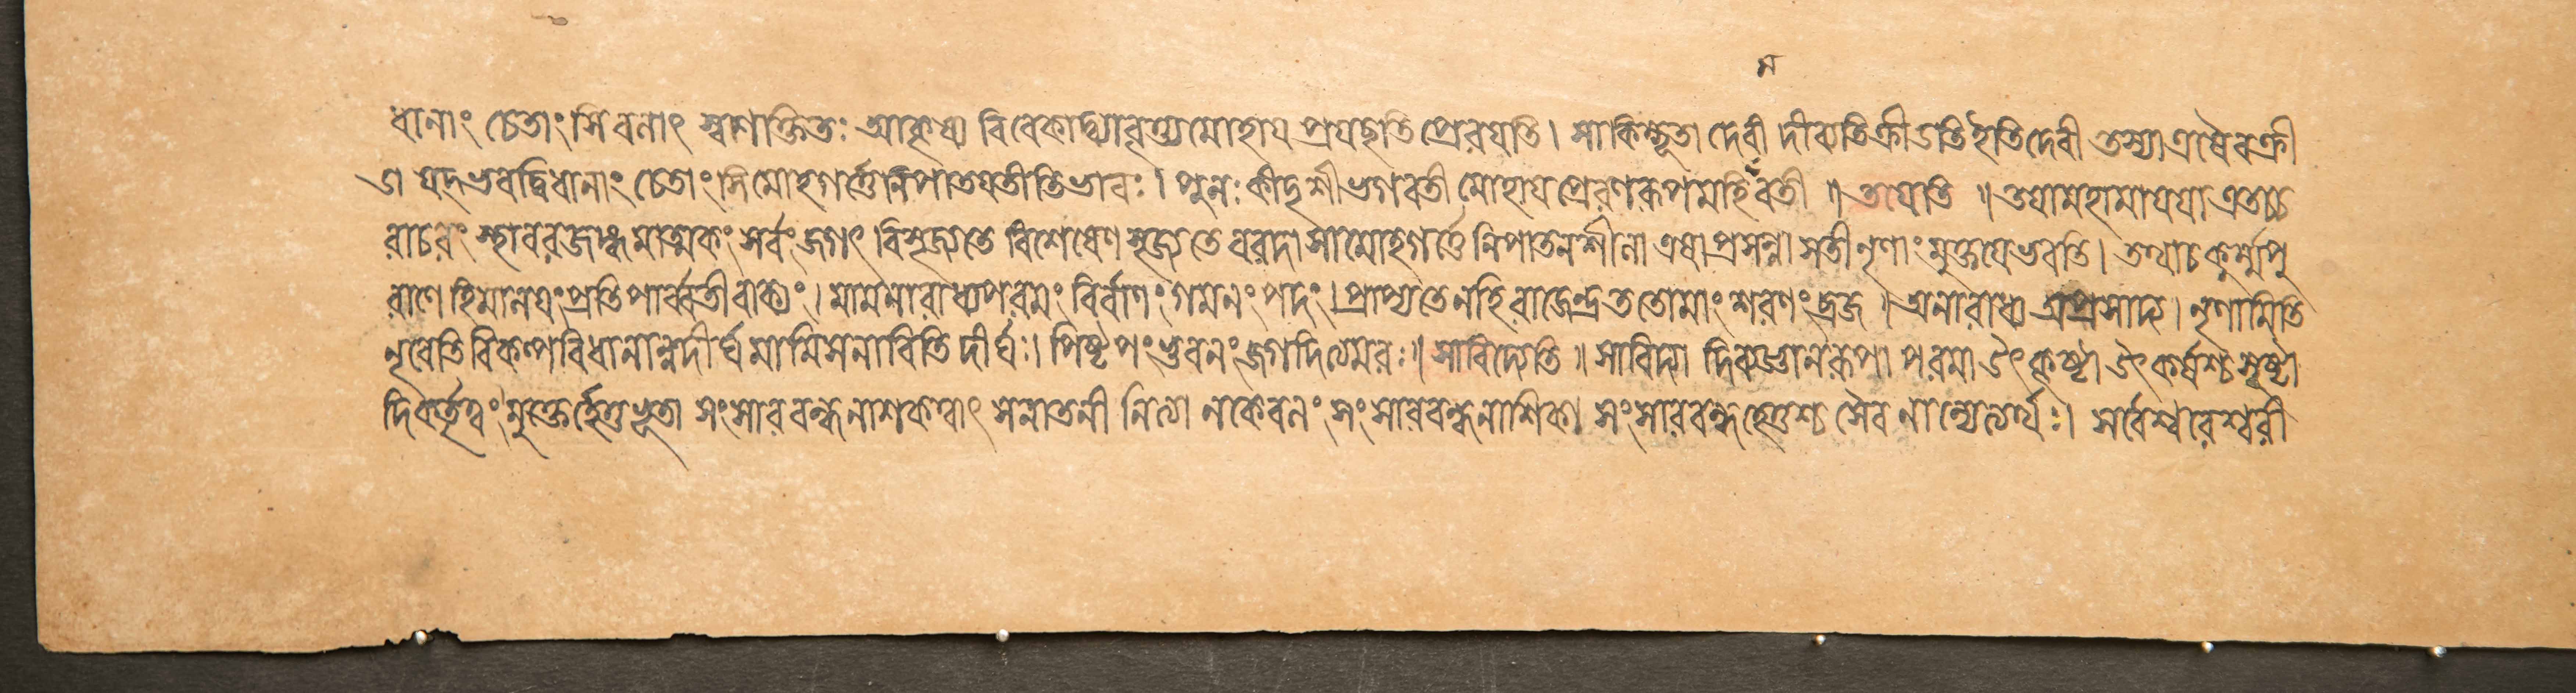 ন
ধানাং চেতাংসি বলাৎ স্বশক্তিতঃ আকৃষ্য বিবেকাদ্ব্যাবৃত্ত্য মোহায প্রযছতি প্রেরযতি। সা কিম্ভূতা দেবী দীব্যতি ক্রীডতি ইতি দেবী তস্যা এষৈব ক্রী
ডা যদ্ভবদ্বিধানাং চেতাংসি মোহগর্ত্তে নিপাতযতীতি ভাবঃ। পুনঃ কীদৃশী ভগবতী মোহায প্রেরণরূপমহিবতী॥ তযেতি॥ তযা মহামাযযা এতচ্চ
রাচরং স্থাবরজাঙ্গমাত্মকং সর্বং জগৎ বিসৃজ্যতে বিশেষেণ সৃজ্যতে বরদা সা মোহগর্ত্তে নিপাতনশীলা এষা প্রসন্না সতী নৃণাং মুক্তযে ভবতি। তথাচ কুর্ম্মপু
রাণে হিমালযং প্রতি পার্ব্বতীবাক্যং। মামনারাধ্য পরমং নির্বাণং গমনং পদং। প্রাপ্যতে নহি রাজেন্দ্র ততো মাং শরণং ব্রজ। অনারাধ্য অপ্রসাদ্য। নৃণামিতি
নৃবেতি বিকল্পবিধানান্ন দীর্ঘ মামিমনাবিতি দীর্ঘঃ। পিষ্টপং ভুবনং জগদিত্যমরঃ॥ সাবিদ্যেতি॥ সা বিদ্যা দিব্যজ্ঞানরূপা পরমা উৎকৃষ্টা উৎকর্ষশ্চ সৃষ্ট্যা
দিকর্তৃত্বং মুক্তের্হেতুভূতা সংসারবন্ধনাশকত্বাৎ সনাতনী নিত্যা ন কেবলং সংসারবন্ধনাশিকা সংসারবন্ধহেতুশ্চ সৈব নান্যেত্যর্থঃ। সর্বেশ্বরেশ্বরী